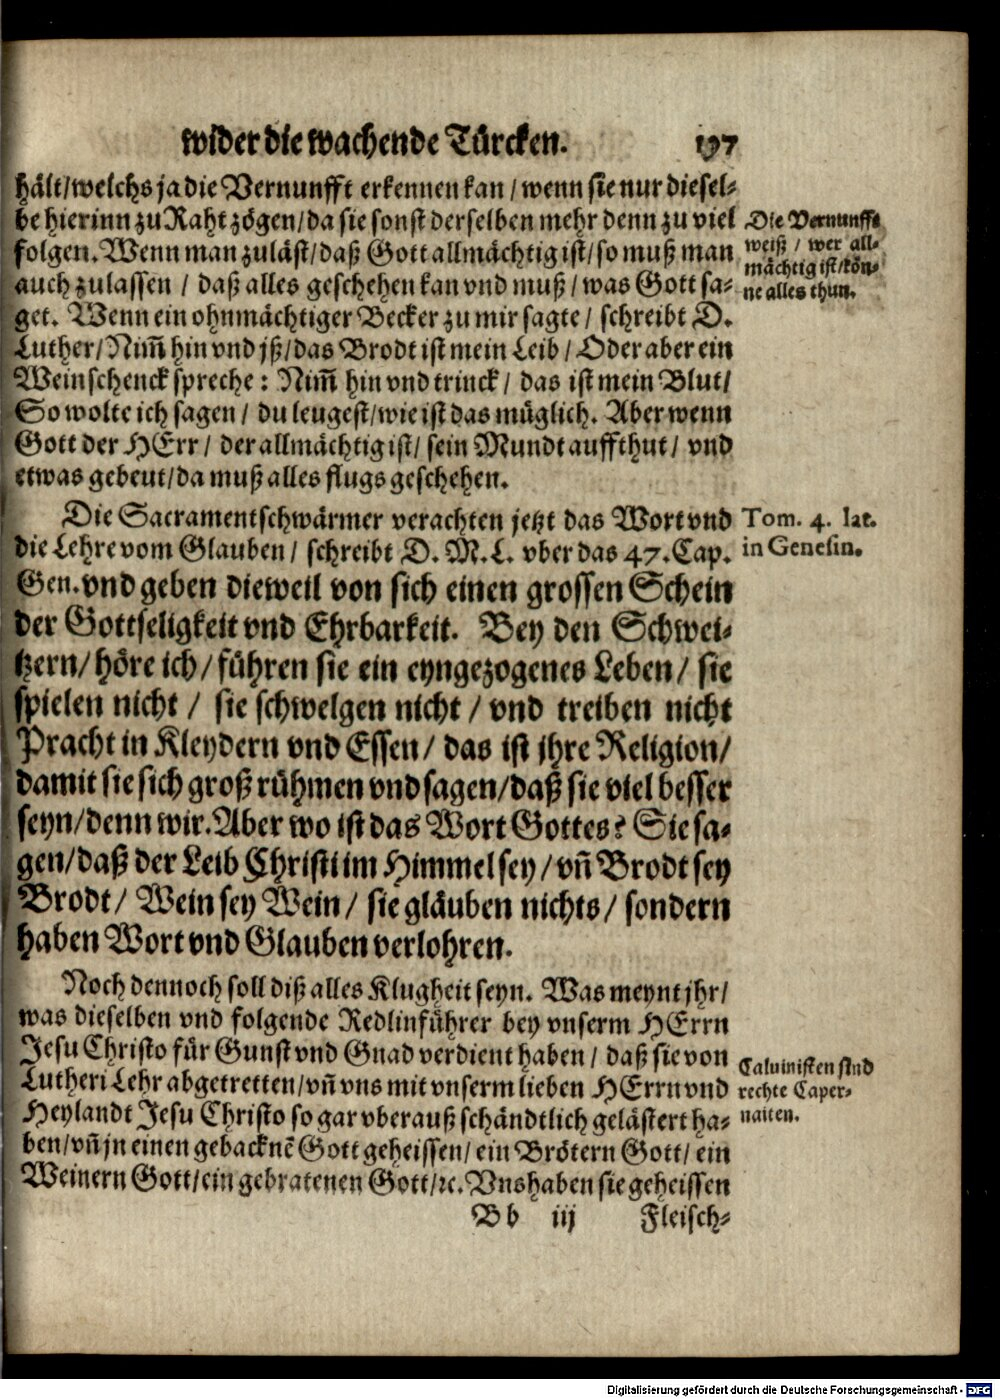 wider die wachende Türcken. 197
hält/welchs ja die Vernunfft erkennen kan / wenn sie nur diesel-
be hierinn zu Raht zögen/da sie sonst derselben mehr denn zu viel
folgen. Wenn man zuläst/daß Gott allmächtig ist/so muß man
auch zulassen / daß alles geschehen kan vnd muß / was Gott sa-
get. Wenn ein ohnmächtiger Becker zu mir sagte / schreibt D.
Luther/Nim̃ hin vnd jß/das Brodt ist mein Leib / Oder aber ein
Weinschenck spreche: Nim̃ hin vnd trinck / das ist mein Blut/
So wolte ich sagen / du leugest/wie ist das müglich. Aber wenn
Gott der HErr / der allmächtig ist/ sein Mundt auffthut / vnd
etwas gebeut/da muß alles flugs geschehen.
Die Vernunfft
weiß / wer all-
mächtig ist/kön-
ne alles thun.
Die Sacramentschwärmer verachten jetzt das Wort vnd
die Lehre vom Glauben / schreibt D. M. L. vber das 47. Cap.
Gen. vnd geben dieweil von sich einen grossen Schein
der Gottseligkeit vnd Ehrbarkeit. Bey den Schwei-
tzern/höre ich/führen sie ein eyngezogenes Leben / sie
spielen nicht / sie schwelgen nicht / vnd treiben nicht
Pracht in Kleydern vnd Essen / das ist jhre Religion/
damit sie sich groß rühmen vnd sagen/daß sie viel besser
seyn/denn wir. Aber wo ist das Wort Gottes? Sie sa-
gen/daß der Leib Christi im Himmel sey / vñ Brodt sey
Brodt / Wein sey Wein / sie gläuben nichts / sondern
haben Wort vnd Glauben verlohren.
Tom. 4. lat.
in Genesin.
Noch dennoch soll diß alles Klugheit seyn. Was meynt jhr/
was dieselben vnd folgende Redlinführer bey vnserm HErrn
Jesu Christo für Gunst vnd Gnad verdient haben / daß sie von
Lutheri Lehr abgetretten/vñ vns mit vnserm lieben HErrn vnd
Heylandt Jesu Christo so gar vberauß schändtlich gelästert ha-
ben/vñ jn einen gebacknẽ Gott geheissen/ ein Brötern Gott/ ein
Weinern Gott/ein gebratenen Gott/ꝛc. Vns haben sie geheissen
Caluinisten sind
rechte Caper-
naiten.
Bb iij Fleisch-
Digitalisierung gefördert durch die Deutsche Forschungsgemeinschaft - DFG